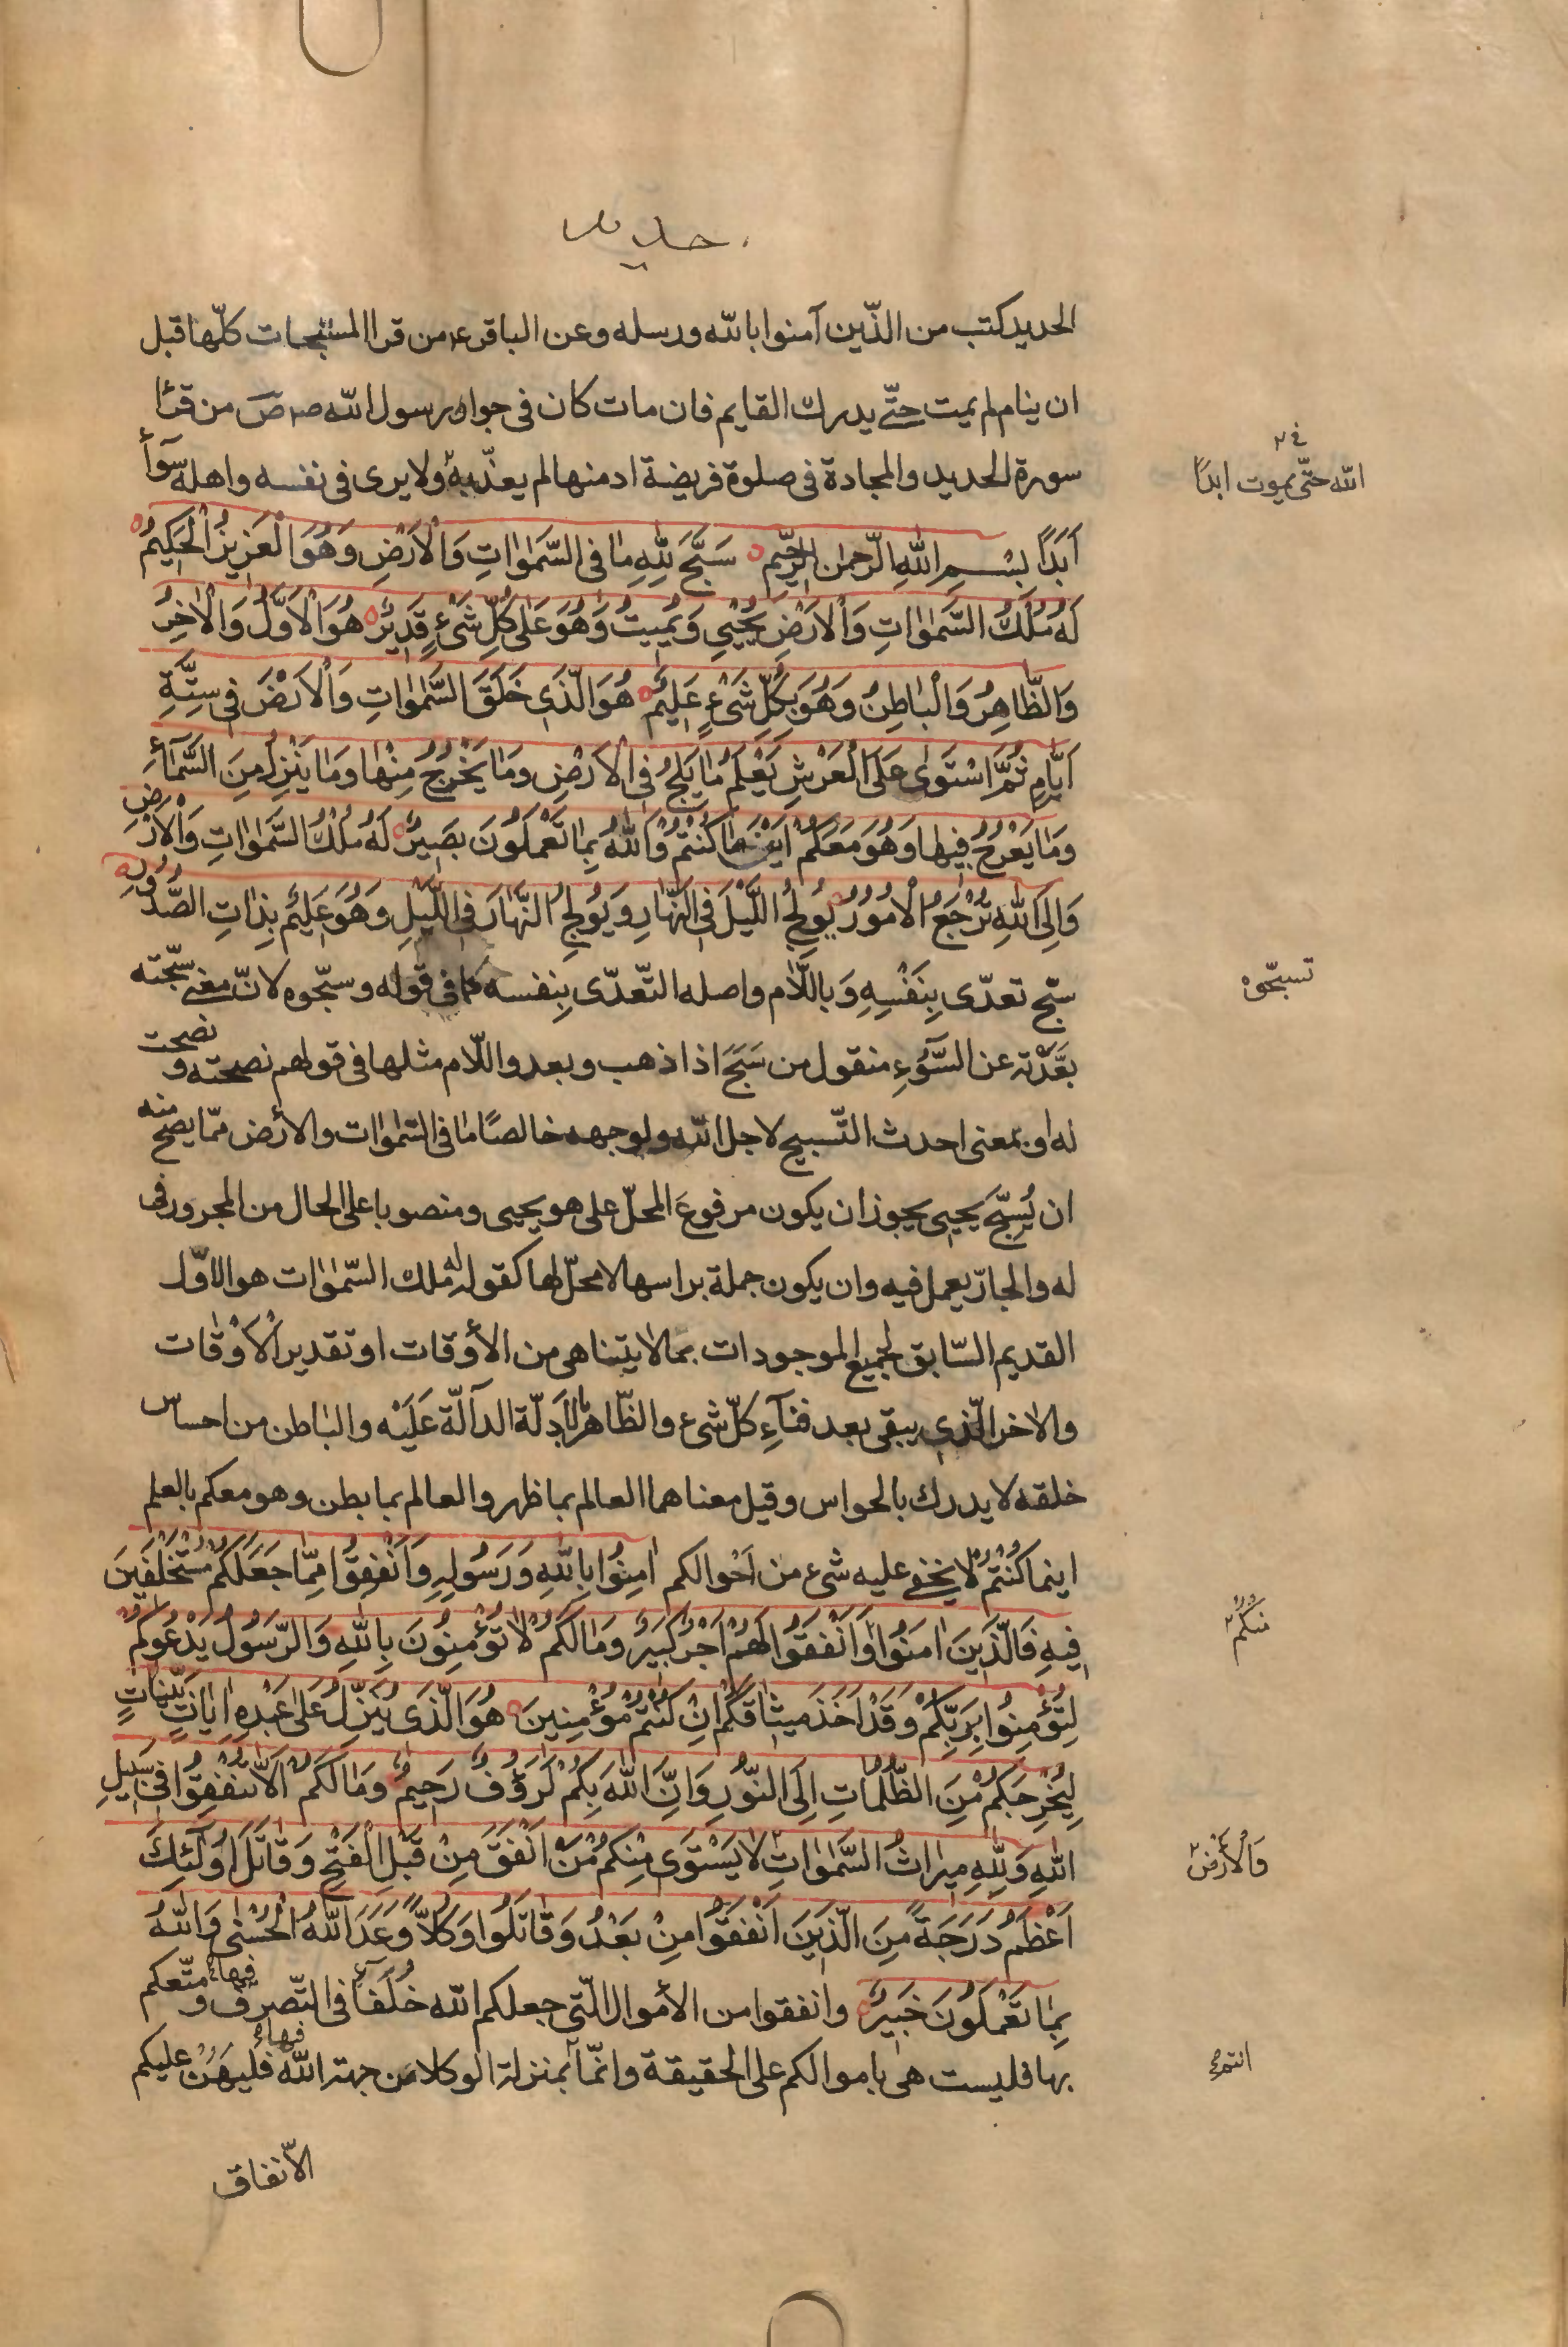 حديد
الحديد كتب من الذّين آمنوا بالله ورسله وعن الباقرء من قرا المسبّحات كلّها قبل
ان ينام لم يمت حتّى يدرك القايم فان مات كان فى جوار رسول الله ص من قرأ
سورة الحديد والمجادة فى صلوة فريضة ادمنها لم يعذّبه ولا يرى فى نفسه واهله سوأ
الله حتّى يموت ابدًا
اَبَداً بِسْمِ اللهِ الرّحمٰنِ الرّحيّمِ سَبَّحَ لِلّٰهِ مٰا فِى السَّمٰوٰاتِ وَالْاَرْضِ وَهُوَ الْعَزيزُ الْحَكيمُ
لَهُ مُلْكُ السَّمٰوٰاتِ وَالْاَرْضِ يُحْيي وَيُميتُ وَهُوَ عَلىٰ كُلِّ شَىْءٍ قَديرٌ هُوَ الْاَوَّلُ وَالْاٰخِرُ
وَالظّٰاهِرُ وَالْبٰاطِنُ وَهُوَ بِكُلِّ شَىْءٍ عَليمٌ هُوَ الَّذى خَلَقَ السَّمٰوٰاتِ وَالْاَرْضَ فى سِتَّةِ
اَيّٰامٍ ثُمَّ اسْتَوىٰ عَلَى الْعَرْشِ يَعْلَمُ مٰا يَلِجُ فِى الْاَرْضِ وَمٰا يَخْرُجُ مِنْهٰا وَمٰا يَنْزِلُ مِنَ السَّمٰآءِ
وَمٰا يَعْرُجُ فيهٰا وَهُوَ مَعَكُمْ اَيْنَ مٰا كُنْتُمْ وَاللهُ بِمٰا تَعْمَلُونَ بَصيرٌ لَهُ مُلْكُ السَّمٰوٰاتِ وَالْاَرْضِ
وَاِلَى اللهِ تُرْجَعُ الْاُمُورُ يُولِجُ اللَّيْلَ فِى النَّهٰارِ وَيُولِجُ النَّهٰارَ فِى اللَّيْلِ وَهُوَ عَليمٌ بِذٰاتِ الصُّدُورِ
سبّح تعدّى بِنَفْسِهِ وَباللّام واصله التّعدّى بِنفسه كما فى قوله وسبّحوه لانّ معنى سبّحته
تسبّحوه
بَعَّدْته عن السّوُءِ منقول من سَبَحَ اذا ذهب وبعد واللّام مثلها فى قولهم نصحته و نصحت
له او بمعنى احدث التّسبيح لاجل الله ولوجهه خالصًا ما فى السّمٰوٰات والأرض ممّا يصحّ منه
ان يُسبّح يحيى يجوز ان يكون مرفوع المحلّ على هو يحيى ومنصوبا على الحال من المجرور فى
له والجارّ يعمل فيه وان يكون جملة براسها لا محلّ لها كقوله له ملك السّمٰوٰات هو الاوّل
القديم السّابق لجميع الموجودات بمالا يتناهى من الأوقات او تقدير الْاَوْقٰات
والاخر الّذى يبقى بعد فنآءِ كلّ شىء والظّاهر بالاَدِلّة الدآلّة عَلَيْه والباطن من احساس
خلقه لا يدرك بالحواس وقيل معناهما العالم بما ظهر والعالم بما بطن وهو معكم بالعلم
اينما كُنْتُمْ لا يخفى عليه شىء من اَحْوالكم اٰمِنُوا بِاللهِ وَرَسُولِهِ وَاَنْفِقُوا مِمّٰا جَعَلَكُمْ مُسْتَخْلَفينَ
فيهِ فَالَّذينَ اٰمَنُوا وَاَنْفَقُوا لَهُمْ اَجْرٌ كَبيرٌ وَمٰا لَكُمْ لٰا تُؤْمِنُونَ بِاللهِ وَالرَّسُولُ يَدْعُوكُمْ
مْنكُمْ
لِتُؤْمِنُوا بِرَبِّكُمْ وَقَدْ اَخَذَ ميثٰاقَكُمْ اِنْ كُنْتُمْ مُؤْمِنينَ هُوَ الَّذى يُنَزِّلُ عَلىٰ عَبْدِهِ اٰيٰاتٍ بَيِّنٰاتٍ
لِيُخْرِجَكُمْ مِنَ الظُّلُمٰاتِ اِلَى النُّورِ وَاِنَّ اللهَ بِكُمْ لَرَؤُفٌ رَحيمٌ وَمٰا لَكُمْ اَلّٰا تُنْفِقُوا فى سَبيلِ
اللهِ وَلِلّٰهِ ميرٰاثُ السَّمٰوٰاتِ لٰا يَسْتَوى مِنْكُمْ مَنْ اَنْفَقَ مِنْ قَبْلِ الْفَتْحِ وَقٰاتَلَ اُولٰئِكَ
وَالْاَرْضِ
اَعْظَمُ دَرَجَةً مِنَ الَّذينَ اَنْفَقُوا مِنْ بَعْدُ وَقٰاتَلُوا وَكُلّاً وَعَدَ اللهُ الْحُسْنىٰ وَاللهُ
بِمٰا تَعْمَلُونَ خَبيرٌ وانفقوا من الأموال الّتى جعلكم الله خُلَفآء فى التّصرف فيها ومتّعكم
بها فليست هى باموالكم على الحقيقة وانّما بمنزلة الوكلاء من جهة الله فيها فليهن عليكم
انتم
الأنفاق